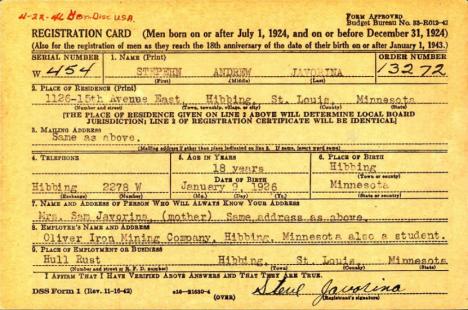 4-22-46 Hon. Disc U.S.A.
FORM APPROVED
Budget Bureau No. 33-R012-42
REGISTRATION CARD (Men born on or after July 1, 1924, and on or before December 31, 1924)
(Also for the registration of men as they reach the 18th anniversary of the date of their birth on or after January 1, 1943.)
SERIAL NUMBER 1. NAME (Print) ORDER NUMBER
W 454 STEPEHN ANDREW JAVORINA 13272
(First) (Middle) (Last)
2. PLACE OF RESIDENCE (Print)
1126-15th Avenue East, Hibbing, St. Louis, Minnesota
(Number and street) (Town, township, village, or city) (County) (State)
[THE PLACE OF RESIDENCE GIVEN ON LINE 2 ABOVE WILL DETERMINE LOCAL BOARD
JURISDICTION; LINE 2 OF REGISTRATION CERTIFICATE WILL BE IDENTICAL]
3. MAILING ADDRESS
Same as above.
[Mailing address if other than place indicated on line 2. If same, insert word same]
4. TELEPHONE 5. AGE IN YEARS 6. PLACE OF BIRTH
18 years Hibbing
DATE OF BIRTH (Town or county)
Hibbing 2278 W January 9, 1926 Minnesota
(Exchange) (Number) (Mo.) (Day) (Yr.) (State or country)
7. NAME AND ADDRESS OF PERSON WHO WILL ALWAYS KNOW YOUR ADDRESS
Mrs. Sam Javorina, (mother) Same address as above.
8. EMPLOYER'S NAME AND ADDRESS
Oliver Iron Mining Company, Hibbing, Minnesota also a student.
9. PLACE OF EMPLOYMENT OR BUSINESS
Hull Rust Hibbing, St. Louis, Minnesota
(Number and street or R. F. D. number) (Town) (County) (State)
I AFFIRM THAT I HAVE VERIFIED ABOVE ANSWERS AND THAT THEY ARE TRUE.
DSS Form 1 (Rev. 11-16-42) (OVER) Steve Javorina
(Registrant's signature)